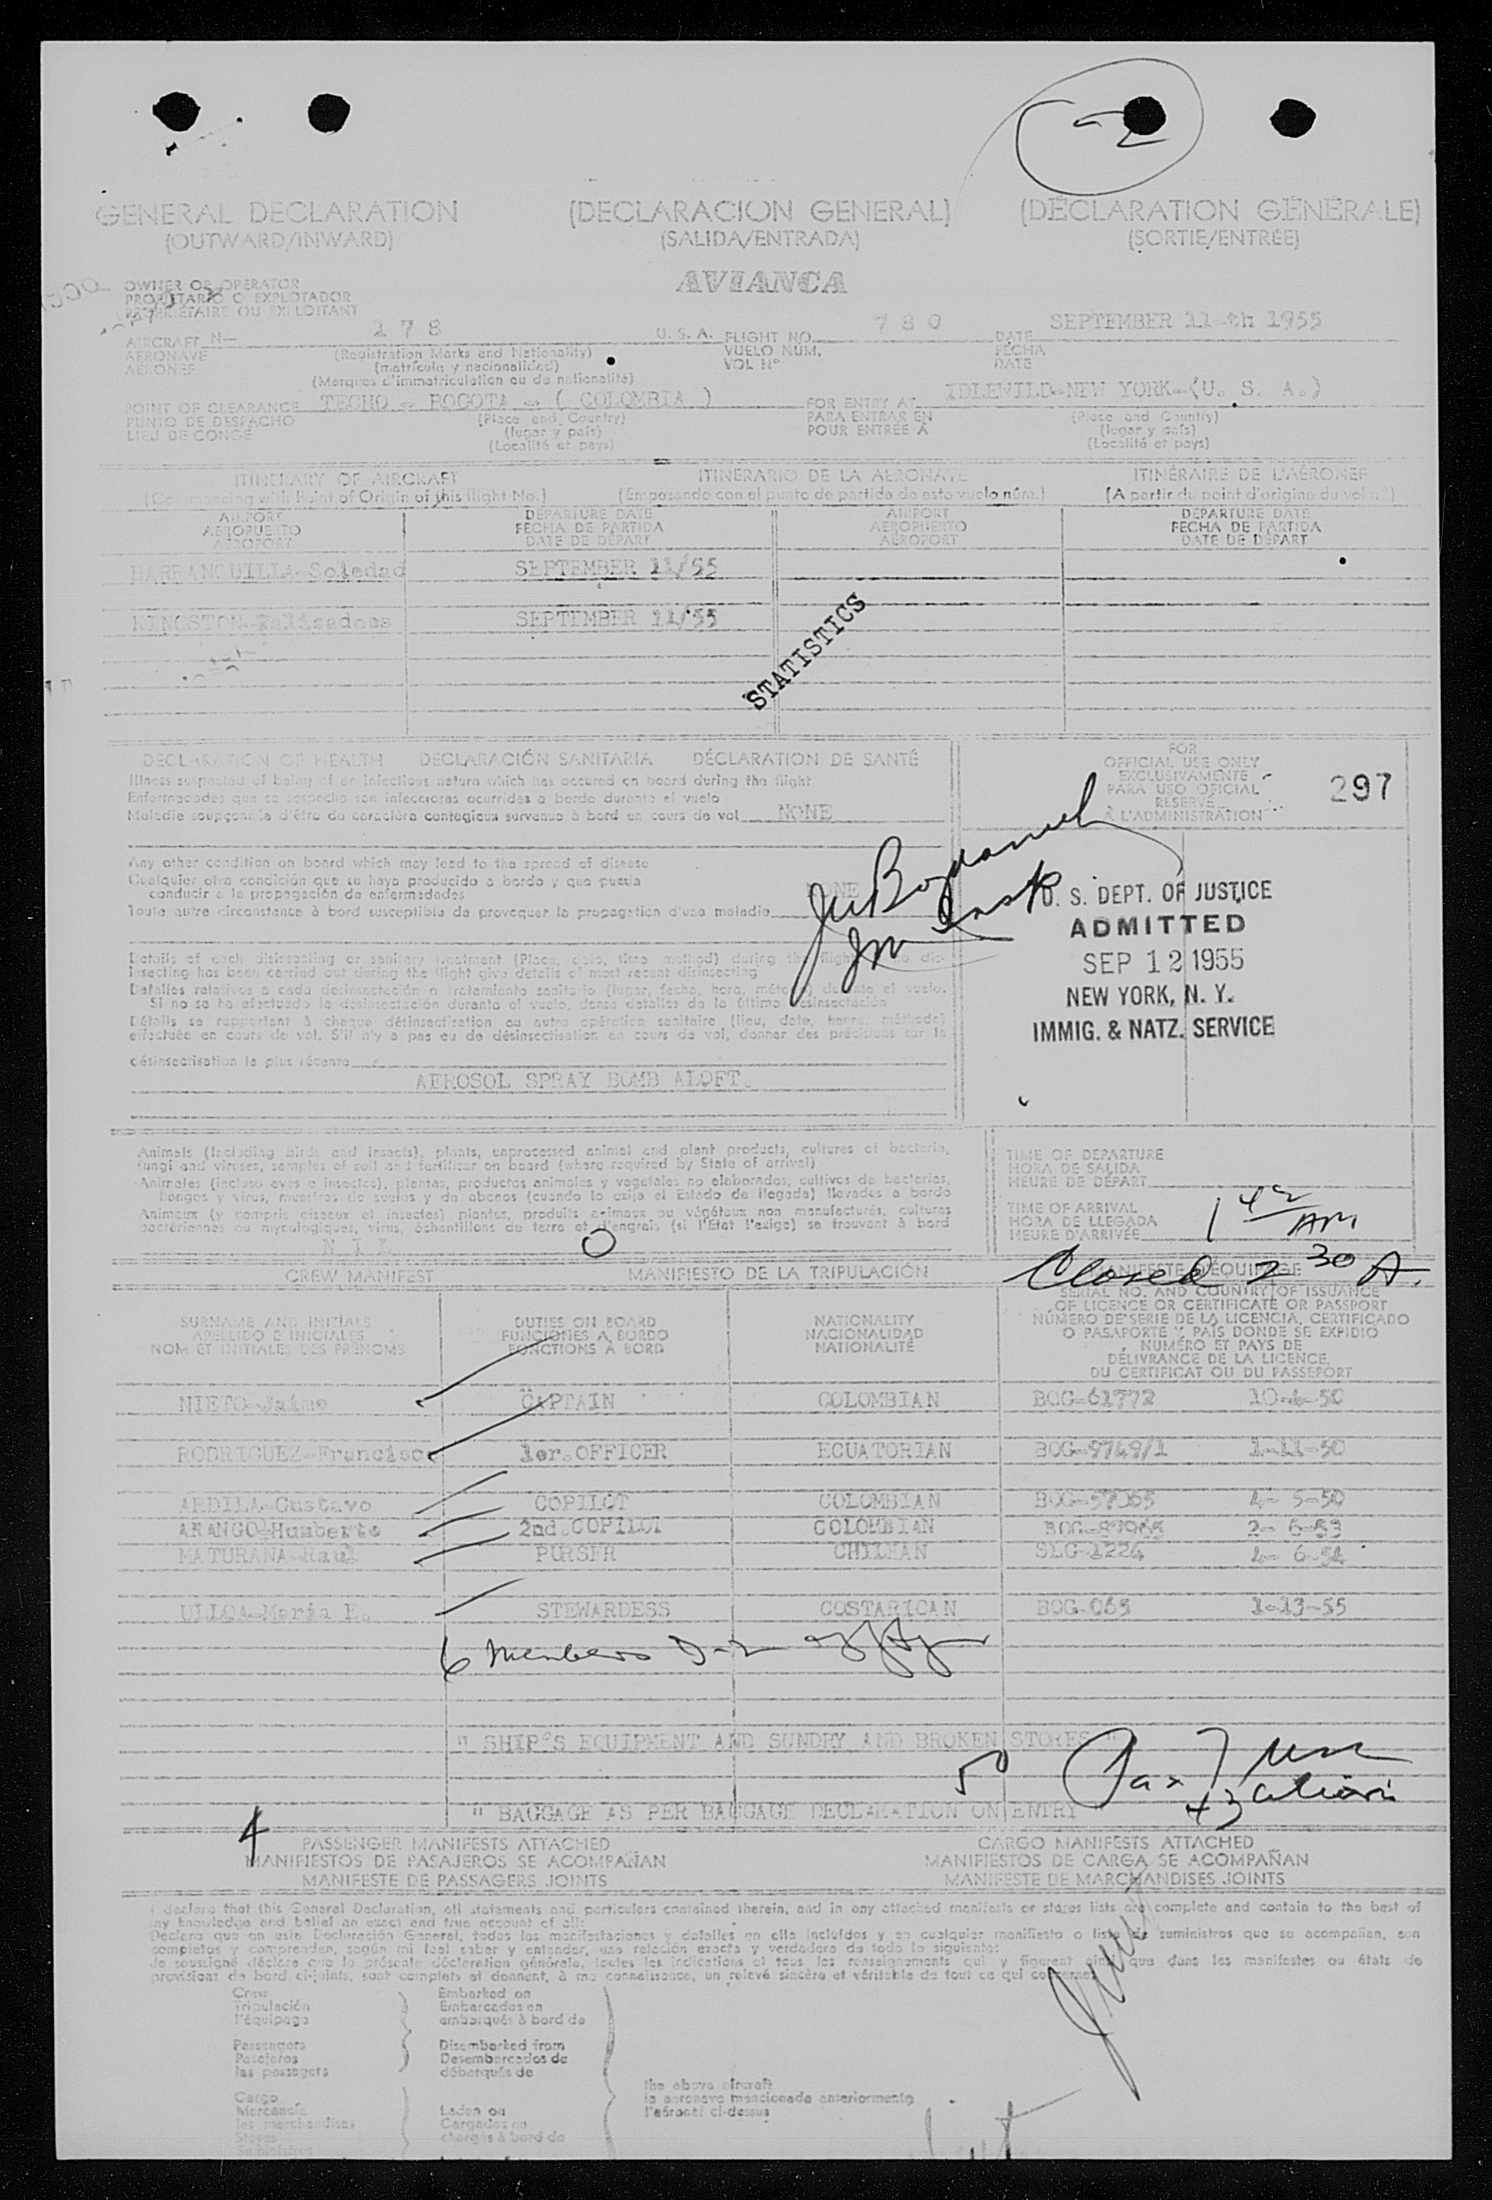 GENERAL DECLARATION (DECLARACION GENERAL) (DÉCLARATION GÉNÉRALE)
(OUTWARD/INWARD) (SALIDA/ENTRADA) (SORTIE/ENTRÉE)
AVIANCA
OWNER OR OPERATOR
PROPIETARIO O EXPLOTADOR
PROPRIÉTAIRE OU EXPLOITANT
AIRCRAFT N- 178 U. S. A. FLIGHT NO. 780 DATE SEPTEMBER 11-th 1955
AERONAVE (Registration Marks and Nationality) VUELO NUM. FECHA
AÉRONEF (matrícula y nacionalidad) VOL Nº DATE
(Marques d'immatriculation ou de nationalité)
POINT OF CLEARANCE TECHO - BOGOTA - ( COLOMBIA ) FOR ENTRY AT IDLEWILD-NEW YORK-(U. S. A.)
PUNTO DE DESPACHO (Place and Country) PARA ENTRAR EN (Place and Country)
LIEU DE CONGÉ (lugar y país) POUR ENTRÉE À (lugar y país)
(Localité et pays) (Localité et pays)
ITINERARY OF AIRCRAFT ITINERARIO DE LA AERONAVE ITINÉRAIRE DE L'AÉRONEF
(Commencing with Point of Origin of this flight No.) (Empezando con el punto de partida de este vuelo núm.) (A partir du point d'origine du vol nº)
AIRPORT DEPARTURE DATE AIRPORT DEPARTURE DATE
AEROPUERTO FECHA DE PARTIDA AEROPUERTO FECHA DE PARTIDA
AÉROPORT DATE DE DÉPART AÉROPORT DATE DE DÉPART
BARRANQUILLA-Soledad SEPTEMBER 11/55
KINGSTON-Palisadoes SEPTEMBER 11/55
STATISTICS
DECLARATION OF HEALTH DECLARACIÓN SANITARIA DÉCLARATION DE SANTÉ
Illness suspected of being of an infectious nature which has occured on board during the flight
Enfermedades que se sospecha son infecciosas ocurridas a bordo durante el vuelo
Maladie soupçonnée d'être du caractère contagieux survenue à bord en cours de vol NONE
FOR
OFFICIAL USE ONLY
EXCLUSIVAMENTE
PARA USO OFICIAL
RESERVÉ
À L'ADMINISTRATION
297
Any other condition on board which may lead to the spread of disease
Cualquier otra condición que se haya producido a bordo y que pueda
conducir a la propagación de enfermedades NONE
Toute autre circonstance à bord susceptible de provoquer la propagation d'une maladie
U. S. DEPT. OF JUSTICE
ADMITTED
SEP 12 1955
NEW YORK, N. Y.
IMMIG. & NATZ. SERVICE
Details of each disinsecting or sanitary treatment (Place, date, time method) during the flight. If no dis-
insecting has been carried out during the flight give details of most recent disinsecting
Detalles relativos a cada desinsectación o tratamiento sanitario (lugar, fecha, hora, método) durante el vuelo.
Si no se ha efectuado la desinsectación durante el vuelo, dense detalles de la última desinsectación
Détails se rapportant à chaque désinsectisation ou autre opération sanitaire (lieu, date, heure, méthode)
effectuée en cours de vol. S'il n'y a pas eu de désinsectisation en cours de vol, donner des précisions sur la
désinsectisation la plus récente
AEROSOL SPRAY BOMB ALOFT.
Animals (Including birds and insects), plants, unprocessed animal and plant products, cultures of bacteria,
fungi and viruses, samples of soil and fertilizer on board (where required by State of arrival)
Animales (incluso aves e insectos), plantas, productos animales y vegetales no elaborados, cultivos de bacterias,
hongos y virus, muestras de suelos y de abonos (cuando lo exija el Estado de llegada) llevados a bordo
Animaux (y compris oiseaux et insectes) plantes, produits animaux ou végétaux non manufacturés, cultures
bactériennes ou mycologiques, virus, échantillons de terre et d'engrais (si l'Etat l'exige) se trouvant à bord
N I L O
TIME OF DEPARTURE
HORA DE SALIDA
HEURE DE DÉPART
TIME OF ARRIVAL
HORA DE LLEGADA
HEURE D'ARRIVÉE
AM
Closed 2 30 A.
CREW MANIFEST MANIFIESTO DE LA TRIPULACIÓN MANIFESTE D'ÉQUIPAGE
SURNAME AND INITIALS DUTIES ON BOARD NATIONALITY SERIAL NO. AND COUNTRY OF ISSUANCE
APELLIDO E INICIALES FUNCIONES A BORDO NACIONALIDAD OF LICENCE OR CERTIFICATE OR PASSPORT
NOM ET INITIALES DES PRÉNOMS FONCTIONS À BORD NATIONALITÉ NÚMERO DE SERIE DE LA LICENCIA, CERTIFICADO
O PASAPORTE Y PAÍS DONDE SE EXPIDIÓ
NUMÉRO ET PAYS DE
DÉLIVRANCE DE LA LICENCE,
DU CERTIFICAT OU DU PASSEPORT
NIETO-Jaime CAPTAIN COLOMBIAN BOG-61772 10-4-50
RODRIGUEZ-Francisco 1er.OFFICER ECUATORIAN BOG-9749/1 1-11-50
ARDILA-Gustavo COPILOT COLOMBIAN BOG-57065 4- 5-50
ARANGO-Humberto 2nd.COPILOT COLOMBIAN BOG-87965 2- 6-53
MATURANA-Raul PURSER CHILEAN SLG-1224 4- 6-54
ULLOA-Maria E. STEWARDESS COSTARICAN BOG-065 1-13-55
6 Members D-2
" SHIP'S EQUIPMENT AND SUNDRY AND BROKEN STORES "
50 Pax
" BAGGAGE AS PER BAGGAGE DECLARATION ON ENTRY
4
PASSENGER MANIFESTS ATTACHED CARGO MANIFESTS ATTACHED
MANIFIESTOS DE PASAJEROS SE ACOMPAÑAN MANIFIESTOS DE CARGA SE ACOMPAÑAN
MANIFESTE DE PASSAGERS JOINTS MANIFESTE DE MARCHANDISES JOINTS
I declare that this General Declaration, all statements and particulars contained therein, and in any attached manifests or stores lists are complete and contain to the best of
my knowledge and belief an exact and true account of all:
Declaro que en esta Declaración General, todas las manifestaciones y detalles en ella incluídos y en cualquier manifiesto o lista de suministros que se acompañan, son
completos y comprenden, según mi leal saber y entender, una relación exacta y verdadera de todo lo siguiente:
Je soussigné déclare que la présente déclaration générale, toutes les indications et tous les renseignements qui y figurent ainsi que dans les manifestes ou états de
provisions de bord ci-joints, sont complets et donnent, à ma connaissance, un relevé sincère et véritable de tout ce qui concerne
Crew Embarked on
Tripulación Embarcados en
l'équipage embarqués à bord de
Passengers Disembarked from
Pasajeros Desembarcados de
les passagers débarqués de
Cargo the above aircraft
Mercancía Laden on la aeronave mencionada anteriormente
les marchandises Cargados en l'aéronef ci-dessus
Stores chargés à bord de
Suministros